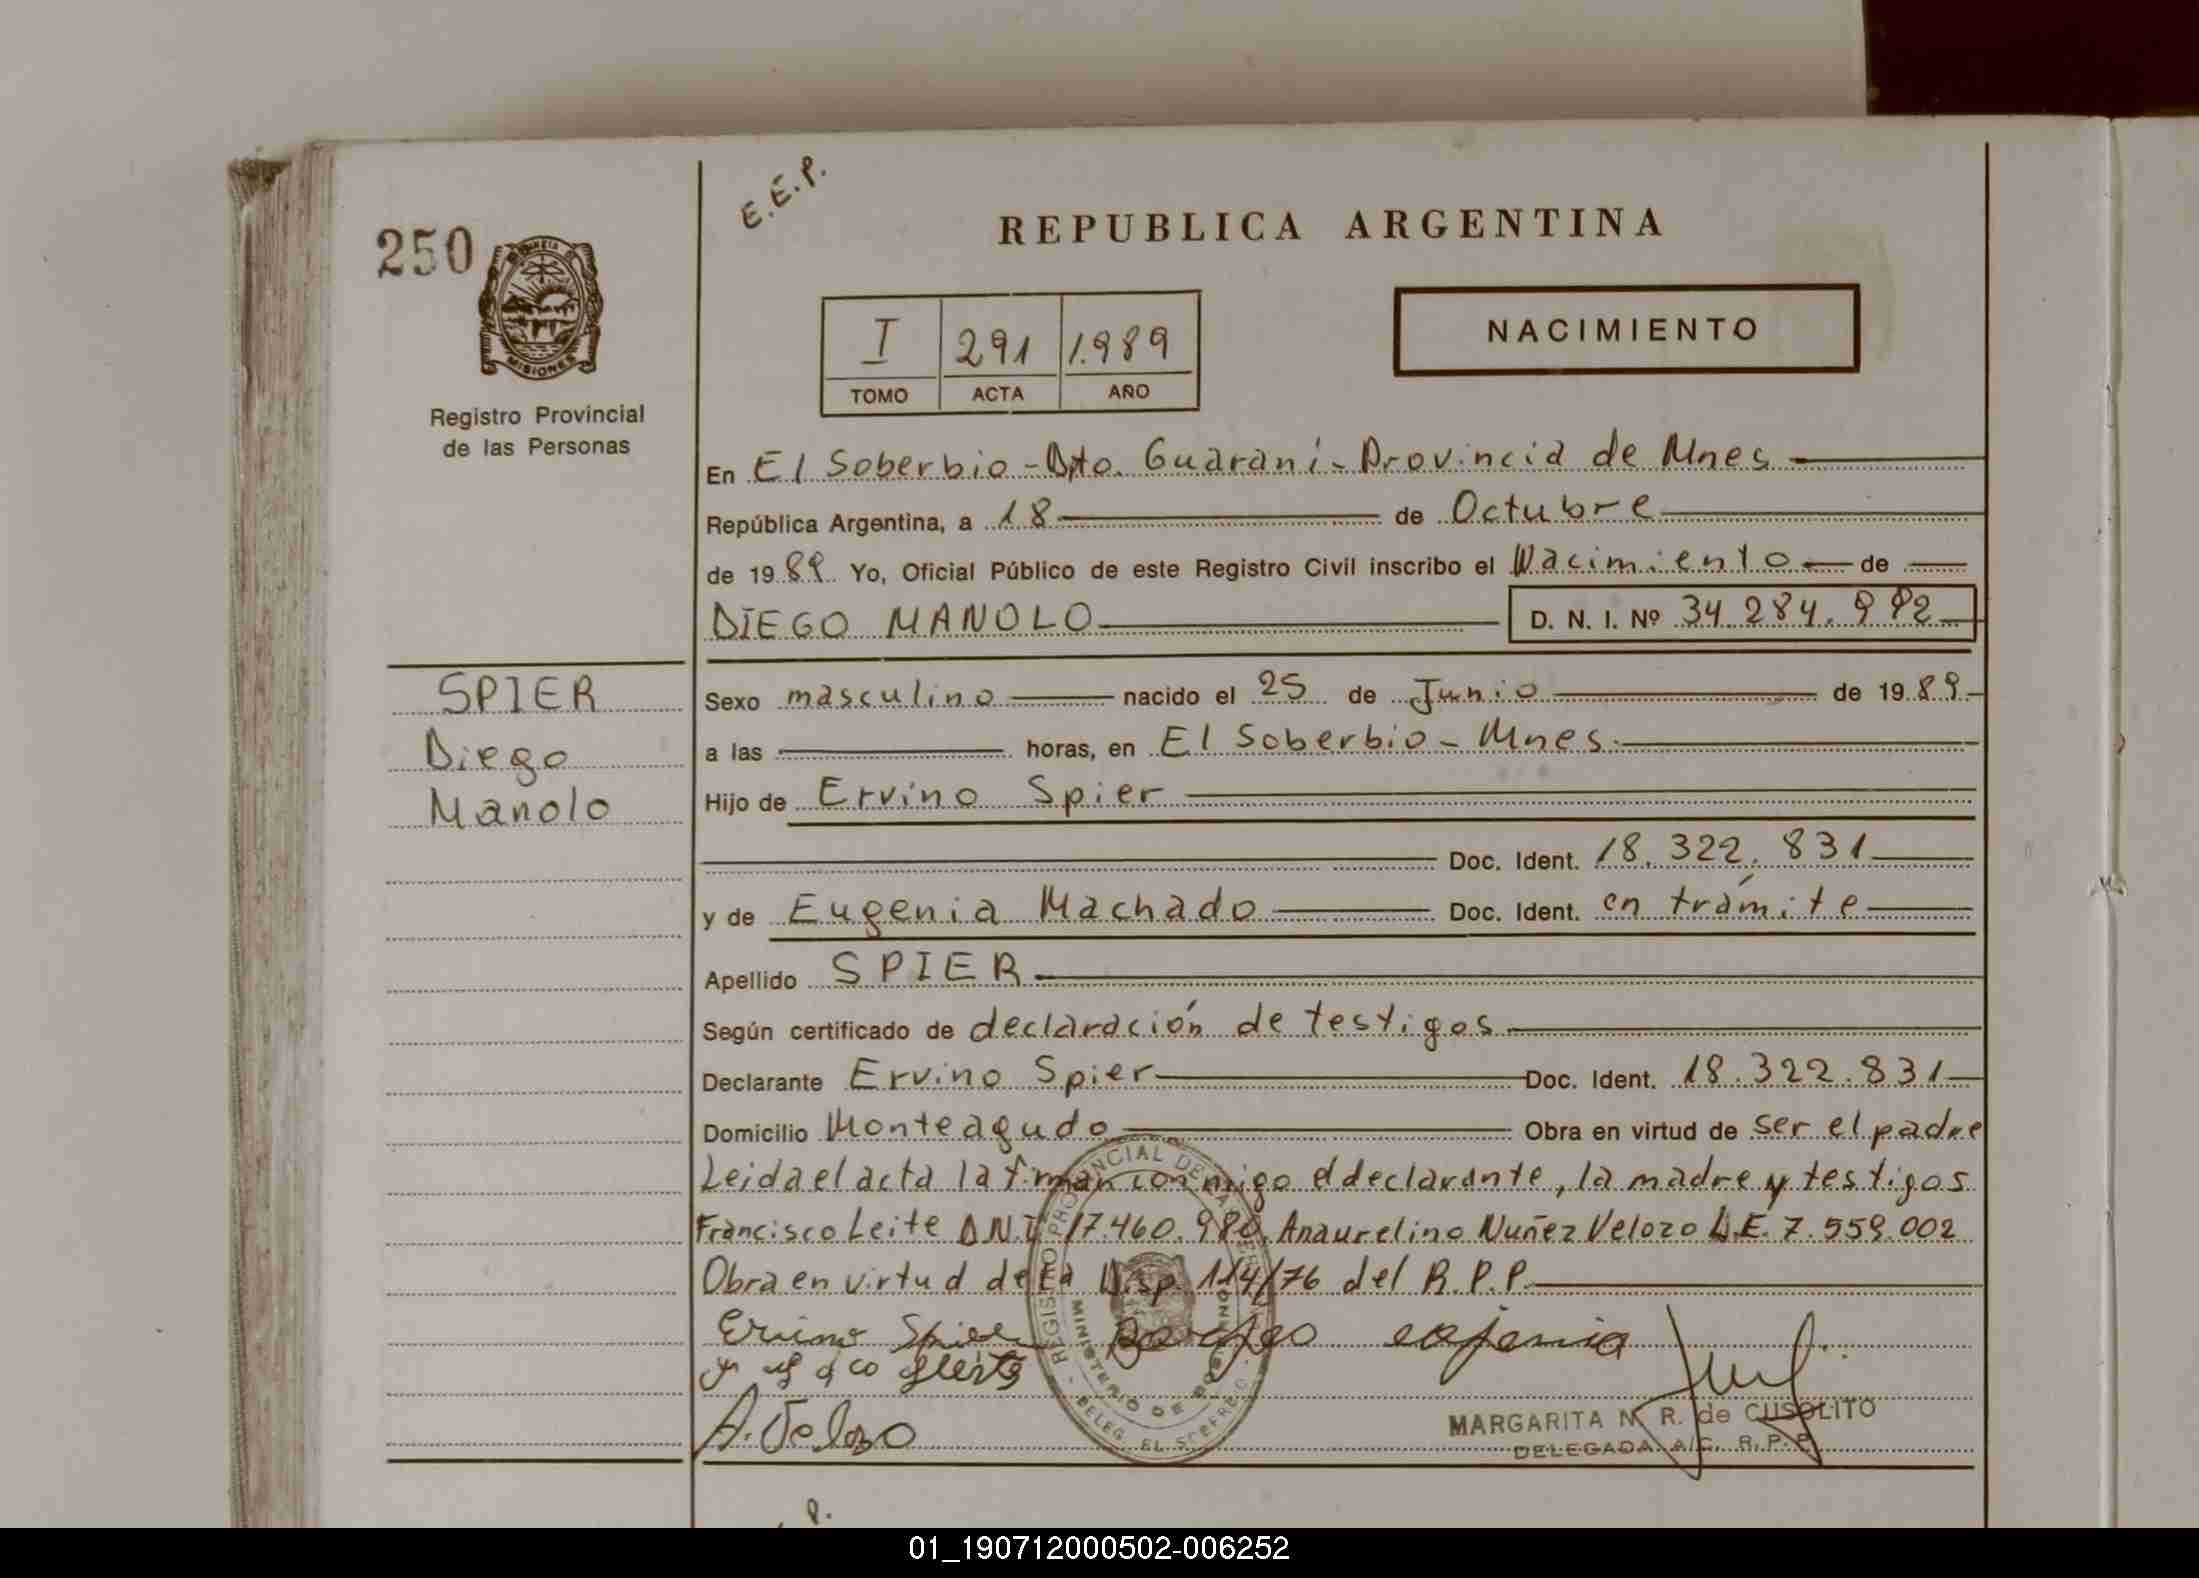 E.E.P.
250
REPUBLICA ARGENTINA
MISIONES
NACIMIENTO
I 291 1.989
TOMO ACTA AÑO
Registro Provincial
de las Personas
En El Soberbio - Dto. Guaraní - Provincia de Mnes
República Argentina, a 18 de Octubre
de 1989 Yo, Oficial Público de este Registro Civil inscribo el Nacimiento de
DIEGO MANOLO D. N. I. Nº 34.284.992
SPIER
Diego
Manolo
Sexo masculino nacido el 25 de Junio de 1989
a las horas, en El Soberbio - Mnes.
Hijo de Ervino Spier
Doc. Ident. 18.322.831
y de Eugenia Machado Doc. Ident. en trámite
Apellido SPIER
Según certificado de declaración de testigos
Declarante Ervino Spier Doc. Ident. 18.322.831
Domicilio Monteagudo Obra en virtud de ser el padre
Leida el acta la firman conmigo el declarante, la madre y testigos
Francisco Leite D.N.I. 17.460.980, Anaurelino Nuñez Velozo L.E. 7.559.002
Obra en virtud de la Disp. 114/76 del R.P.P.
Ervino Spier eojenia
A. Velozo
REGISTRO PROVINCIAL DE LAS PERSONAS
MINISTERIO DE GOBIERNO
DELEG. EL SOBERBIO
MARGARITA N. R. de CUSOLITO
DELEGADA A/C. R.P.P.
P.
01_190712000502-006252